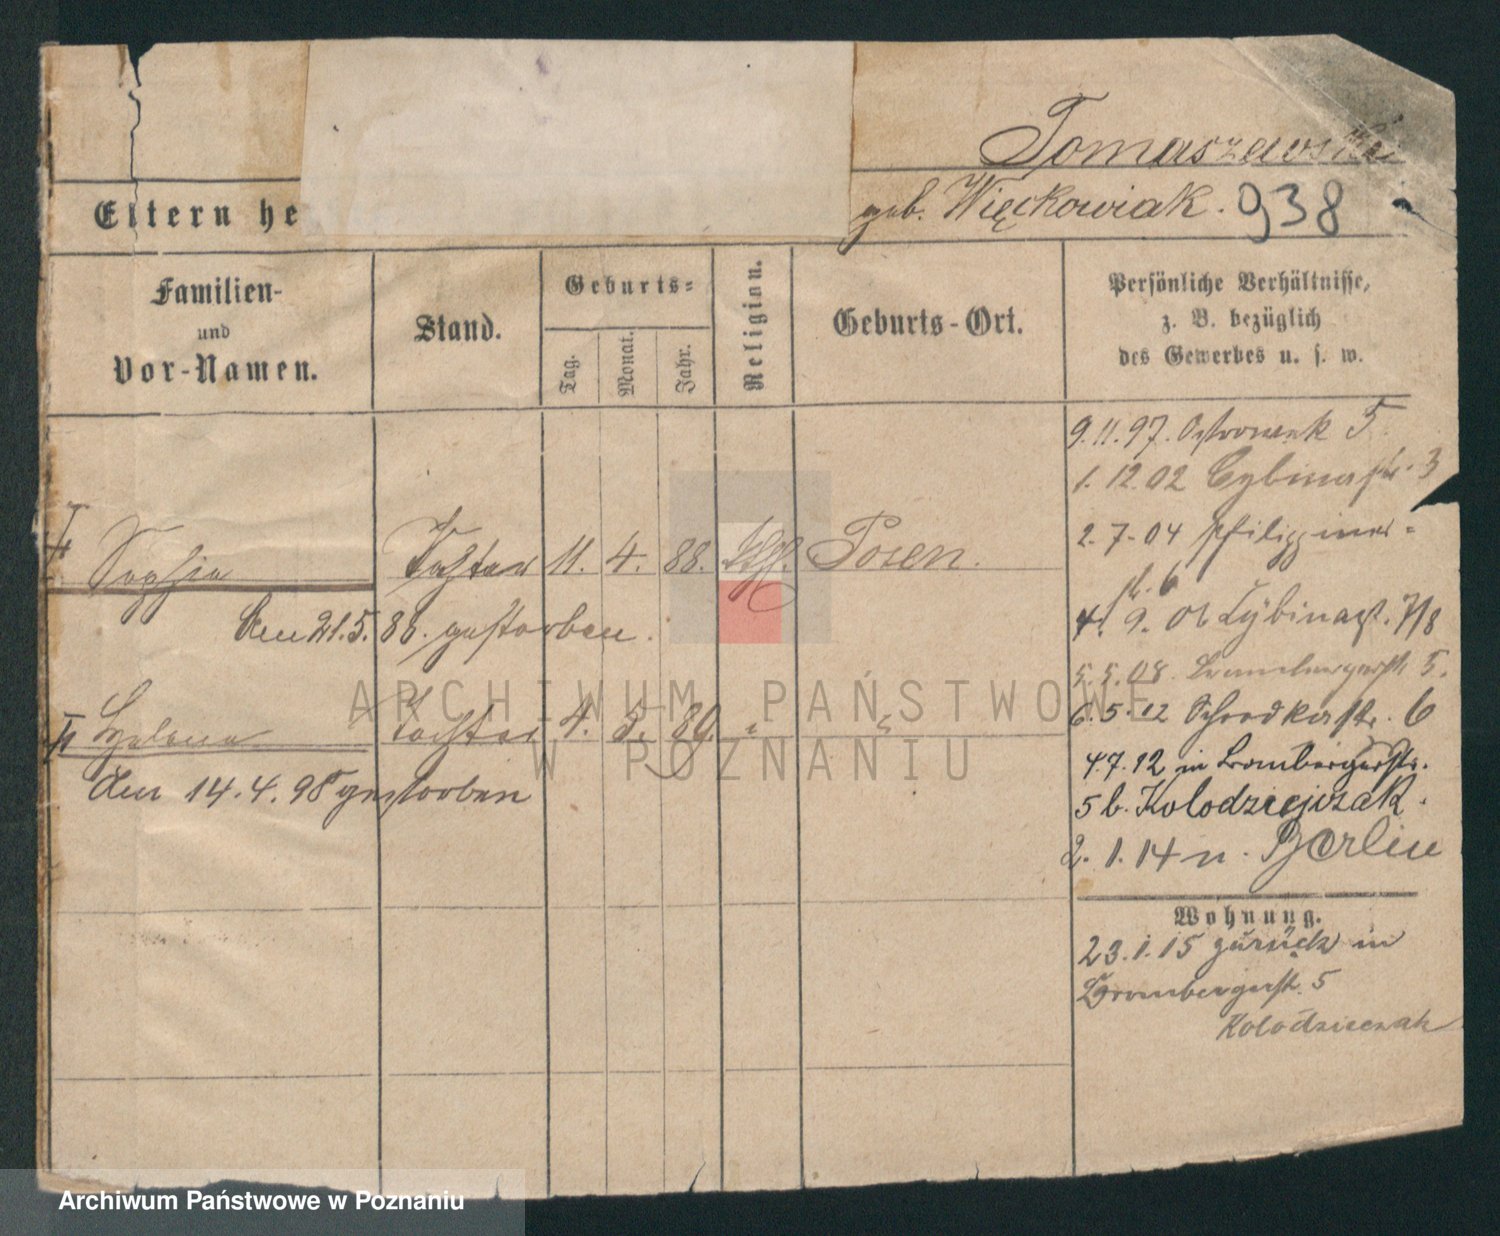 Tomaszewski
Eltern he
geb. Więckowiak. 938
Familien-
und
Vor-Namen.
Stand.
Geburts=
Tag.
Monat.
Jahr.
Religion.
Geburts-Ort.
Persönliche Verhältnisse,
z. B. bezüglich
des Gewerbes u. s. w.
9.11.97. Ostrowek 5
1.12.02 Cybinastr. 3
2.7.04
str. 6
Sophia Tochter 11. 4. 88. kth. Posen.
den 21.5.88. gestorben.
4. 9. 06 Cybinastr. 7/8
5.5.08. Brombergerstr 5.
Helena Tochter 4. 5. 89. " "
6.5.12 Schrodkastr. 6
4.7.12 in Brombergerstr.
den 14.4.98 gestorben
5 b. Kolodziejczak.
2.1.14 n. Berlin
Wohnung.
23.1.15 zurück in
Brombergerstr. 5
Kolodzieczak
ARCHIWUM PAŃSTWOWE
W POZNANIU
Archiwum Państwowe w Poznaniu